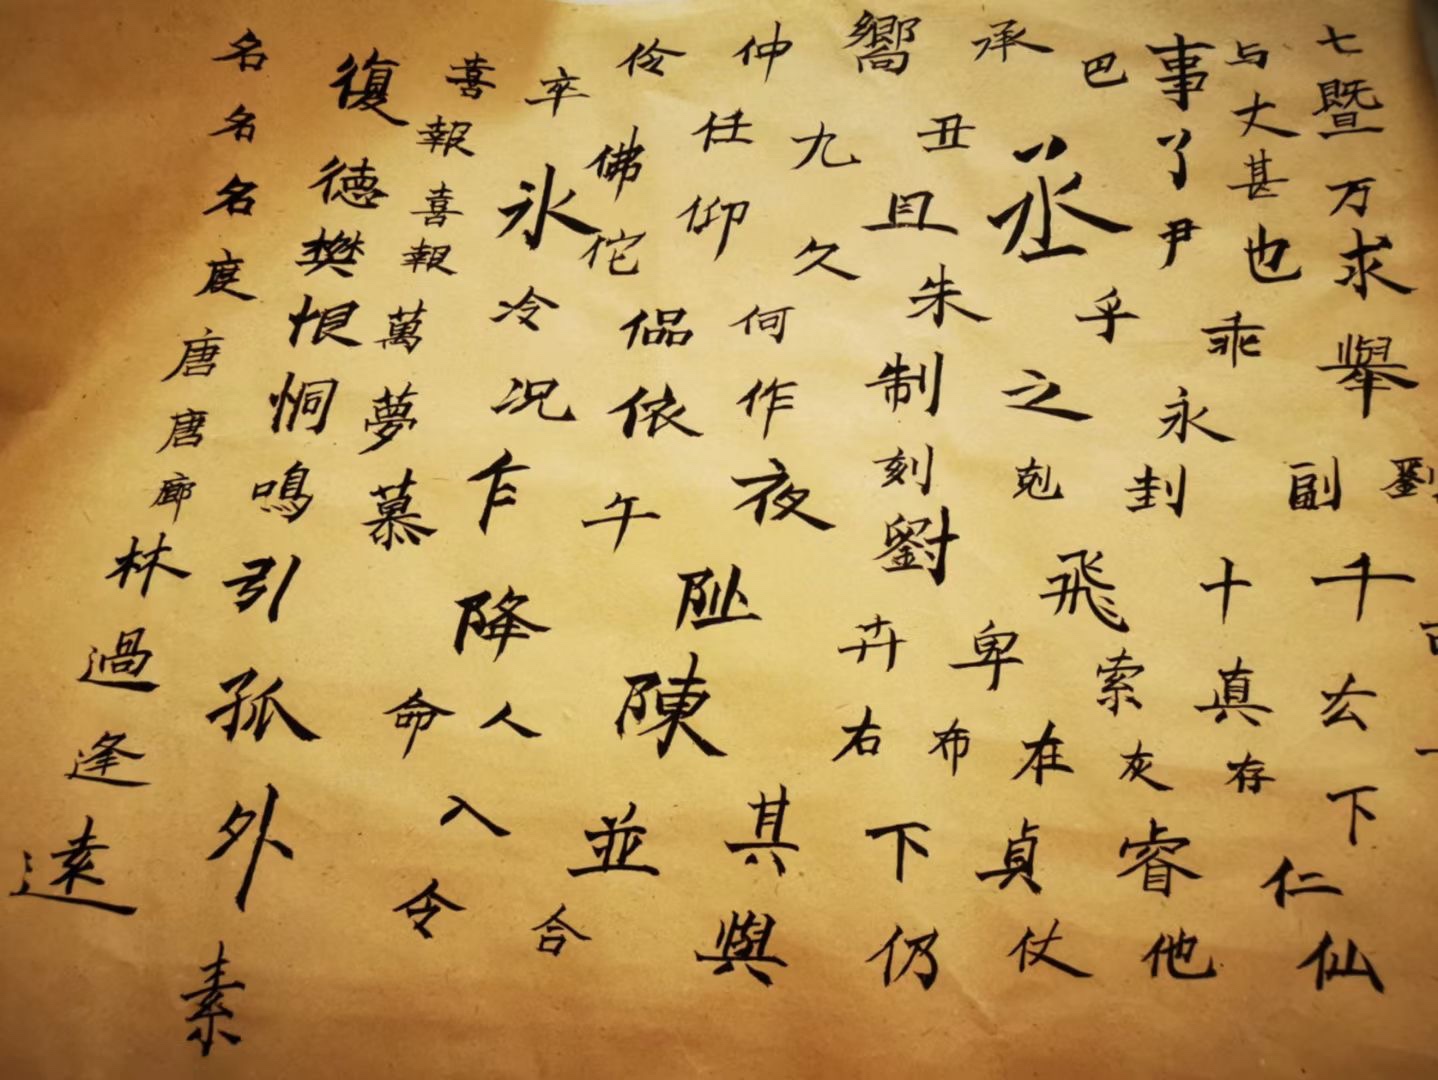 七暨万求舉副
千厷下仙
与丈甚也乖
十真存仁
事了尹永封
巴乎飛索灰睿他
承丞之剋
卑在貞仗
嚮丑且朱制刻劉
卉布右下仍
仲九久何作夜
任仰
其與
伶佛佗侣依午
阯陳並
卒氷冷况乍降
人入合
喜報喜報萬夢慕
命令
復德樊恨恫鳴引孤外素
名名名度唐唐廊林過逢遠